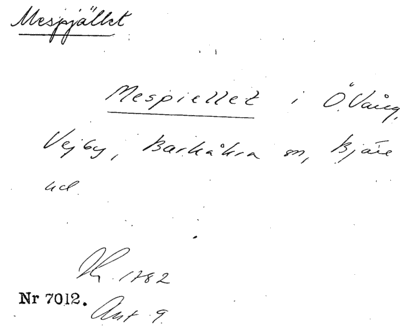 Mespjället
Mespiellet i Ö. Vång,
Vejby, Barkåkra sn, Bjäre
hd
Sk. 1782
Nr 7012.
Akt 9.